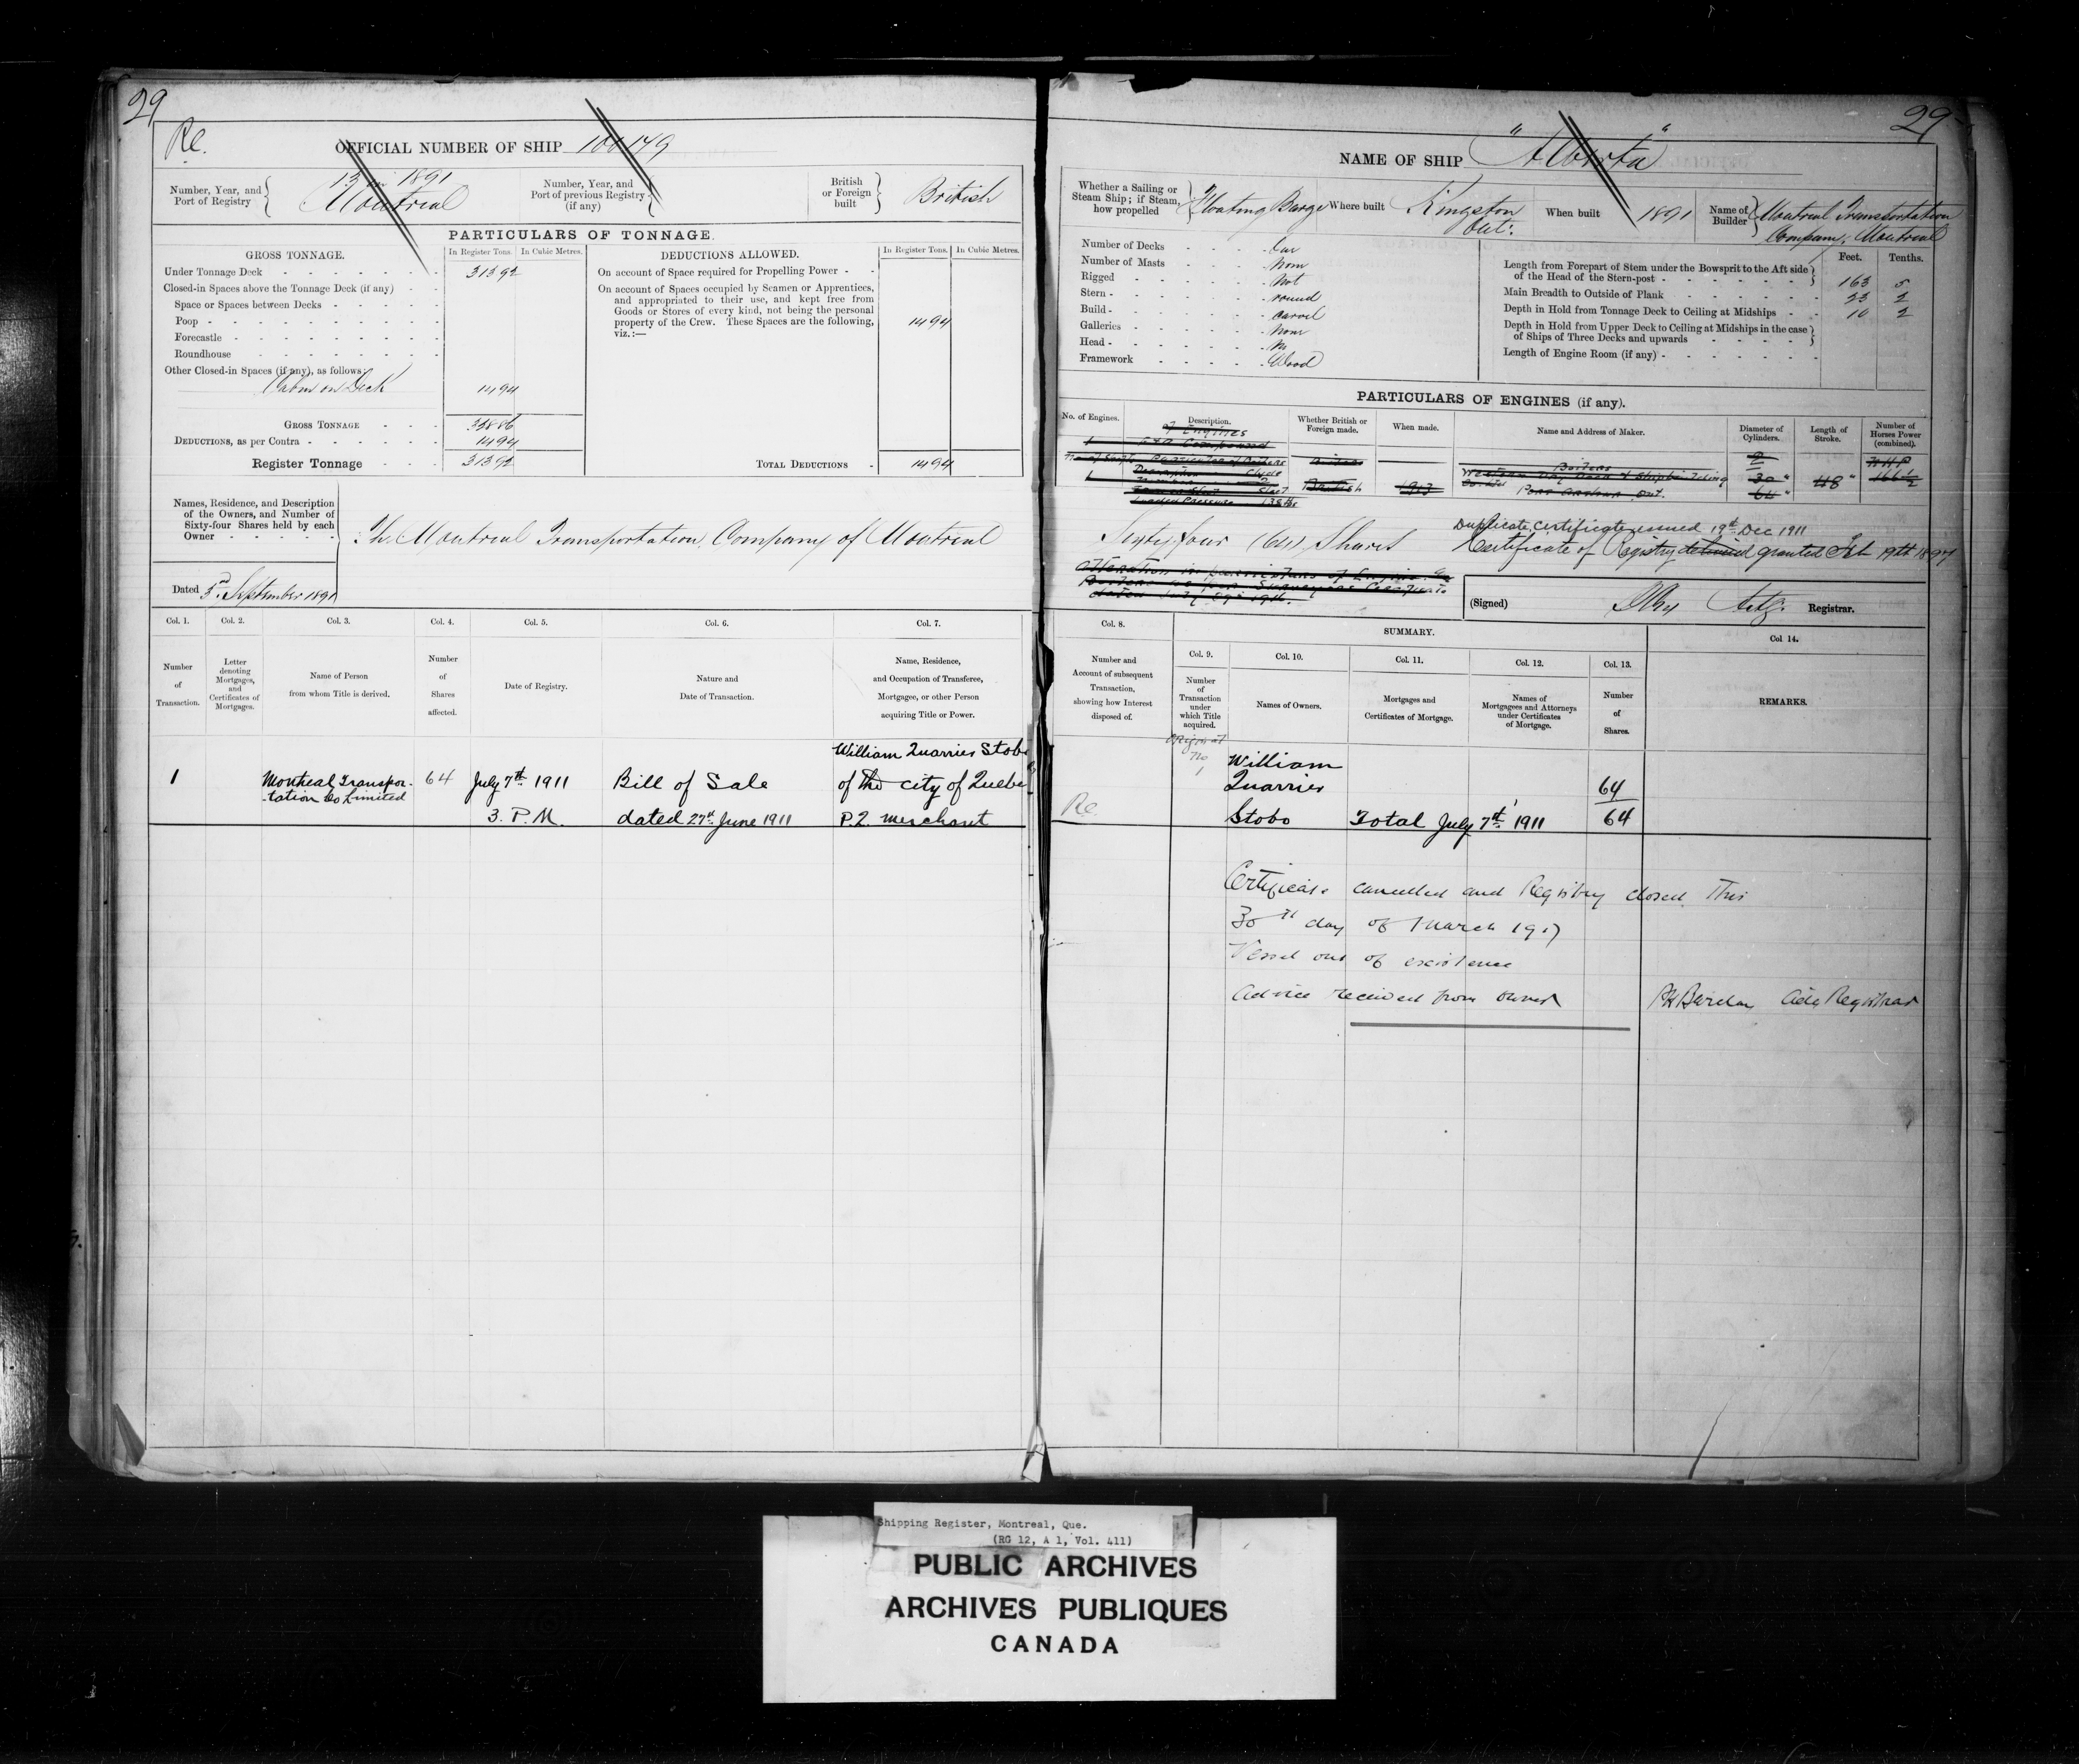 29
Re.
OFFICIAL NUMBER OF SHIP 100149
Number, Year, and Port of Registry
13 in 1891
Montreal
Number, Year, and Port of previous Registry (if any)
British or Foreign built
British
PARTICULARS OF TONNAGE.
GROSS TONNAGE.
In Register Tons.
In Cubic Metres.
DEDUCTIONS ALLOWED.
In Register Tons.
In Cubic Metres.
Under Tonnage Deck 313 92
Closed-in Spaces above the Tonnage Deck (if any)
Space or Spaces between Decks
Poop
Forecastle
Roundhouse
Other Closed-in Spaces (if any), as follows:
Cabin on Deck 14 94
GROSS TONNAGE 328 86
DEDUCTIONS, as per Contra 14 94
Register Tonnage 313 92
On account of Space required for Propelling Power
On account of Spaces occupied by Seamen or Apprentices,
and appropriated to their use, and kept free from
Goods or Stores of every kind, not being the personal
property of the Crew. These Spaces are the following,
viz.:— 14 94
TOTAL DEDUCTIONS 14 94
Names, Residence, and Description
of the Owners, and Number of
Sixty-four Shares held by each
Owner
The Montreal Transportation Company of Montreal
Dated 3rd September 1891
Col. 1.
Col. 2.
Col. 3.
Col. 4.
Col. 5.
Col. 6.
Col. 7.
Number of Transaction.
Letter denoting Mortgages, and Certificates of Mortgages.
Name of Person from whom Title is derived.
Number of Shares affected.
Date of Registry.
Nature and Date of Transaction.
Name, Residence, and Occupation of Transferee, Mortgagee, or other Person acquiring Title or Power.
William Quarrier Stobo
1 Montreal Transpor- 64 July 7th 1911 Bill of Sale of the city of Quebec
-tation Co Limited
3. P.M. dated 27th June 1911 P.Q. merchant
29
NAME OF SHIP "Alberta"
Whether a Sailing or Steam Ship; if Steam, how propelled
Floating Barge
Where built
Kingston
Ont:
When built
1891
Name of Builder
Montreal Transportation
Company, Montreal
Number of Decks One
Number of Masts None
Rigged Not
Stern round
Build carvel
Galleries None
Head No
Framework Wood
Feet.
Tenths.
Length from Forepart of Stem under the Bowsprit to the Aft side of the Head of the Stern-post 163 5
Main Breadth to Outside of Plank 23 2
Depth in Hold from Tonnage Deck to Ceiling at Midships 10 2
Depth in Hold from Upper Deck to Ceiling at Midships in the case of Ships of Three Decks and upwards
Length of Engine Room (if any)
PARTICULARS OF ENGINES (if any).
No. of Engines.
Description.
Whether British or Foreign made.
When made.
Name and Address of Maker.
Diameter of Cylinders.
Length of Stroke.
Number of Horses Power (combined).
of Engines
1
Particulars of Boilers
British
Boilers
2
NHP
Description Clyde
1
Number 2
British
1913
Western Dry Dock & Shipbuilding
Co. Ltd
Port Arthur Ont.
30"
64"
48"
166½
Steel
Loaded Pressure 135 lbs
Sixty four (64) Shares
Duplicate Certificate issued 19th Dec 1911
Certificate of Registry granted Feb 19th 1897
Alteration in particulars of Engine &
Boilers as per Surveyors Certificate
(Signed)
Actg. Registrar.
Col. 8.
SUMMARY.
Col. 9.
Col. 10.
Col. 11.
Col. 12.
Col. 13.
Col 14.
Number and Account of subsequent Transaction, showing how Interest disposed of.
Number of Transaction under which Title acquired.
Names of Owners.
Mortgages and Certificates of Mortgage.
Names of Mortgagees and Attorneys under Certificates of Mortgage.
Number of Shares.
REMARKS.
Original
No
1
William
Quarrier 64
Re.
Stobo Total July 7th 1911 64
Certificate cancelled and Registry closed This
30th day of March 1917
Vessel out of existence
Advice received from owner
Registrar
Shipping Register, Montreal, Que.
(RG 12, A 1, Vol. 411)
PUBLIC ARCHIVES
ARCHIVES PUBLIQUES
CANADA